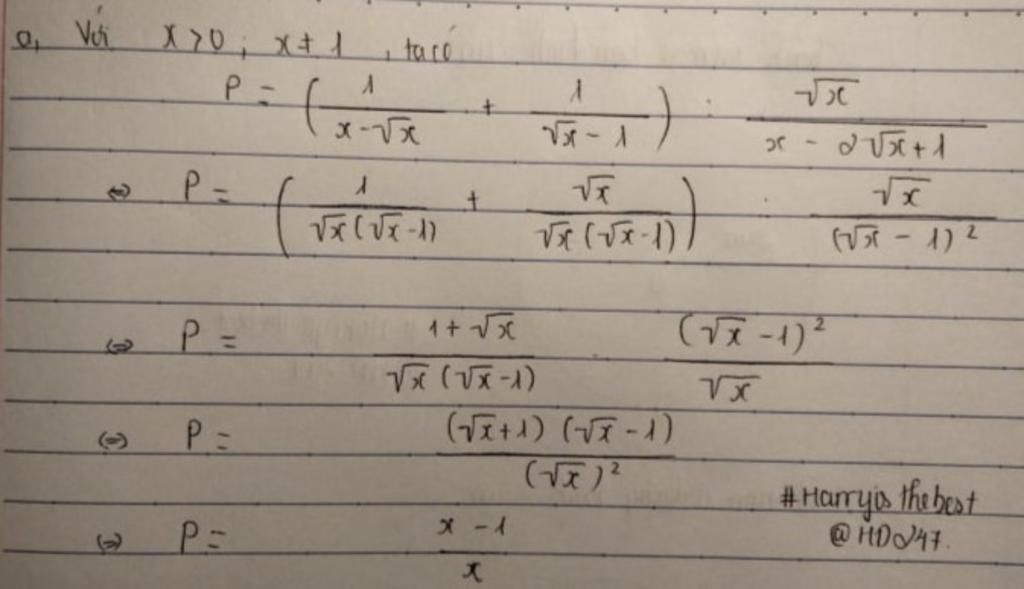 a, Với x>0; x≠1, ta có
P = (1/(x-√x) + 1/(√x-1)) : √x/(x-2√x+1)
⇔ P = (1/(√x(√x-1)) + √x/(√x(√x-1))) : √x/(√x-1)²
⇔ P = (1+√x)/(√x(√x-1)) · (√x-1)²/√x
⇔ P = (√x+1)(√x-1)/(√x)²
#Harryisthebest
⇔ P = (x-1)/x
@HD247.